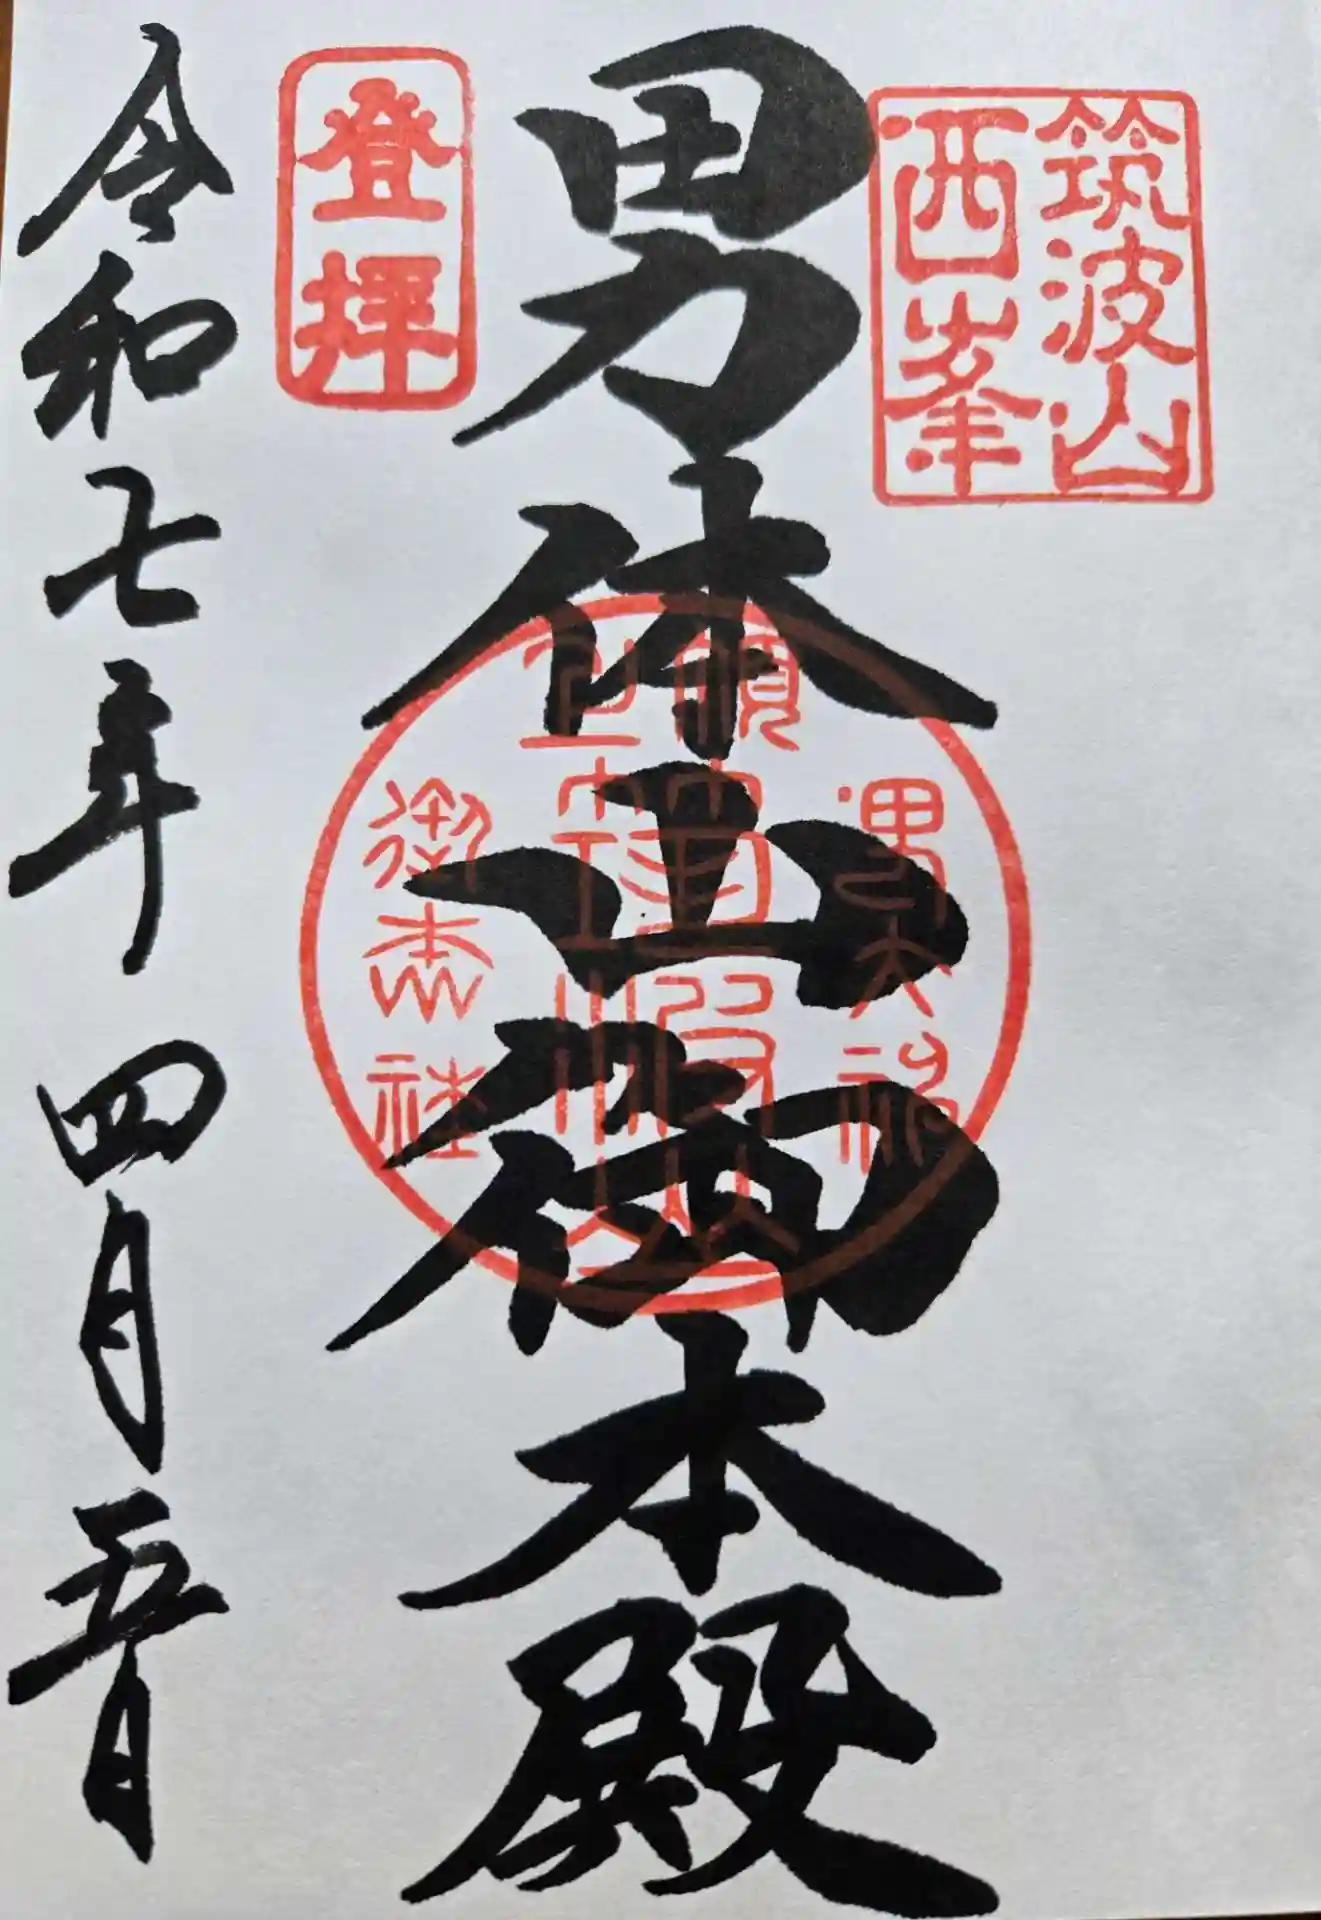 筑波山
西峯
男体山御本殿
登拝
令和七年 四月五日
男大神
御本社